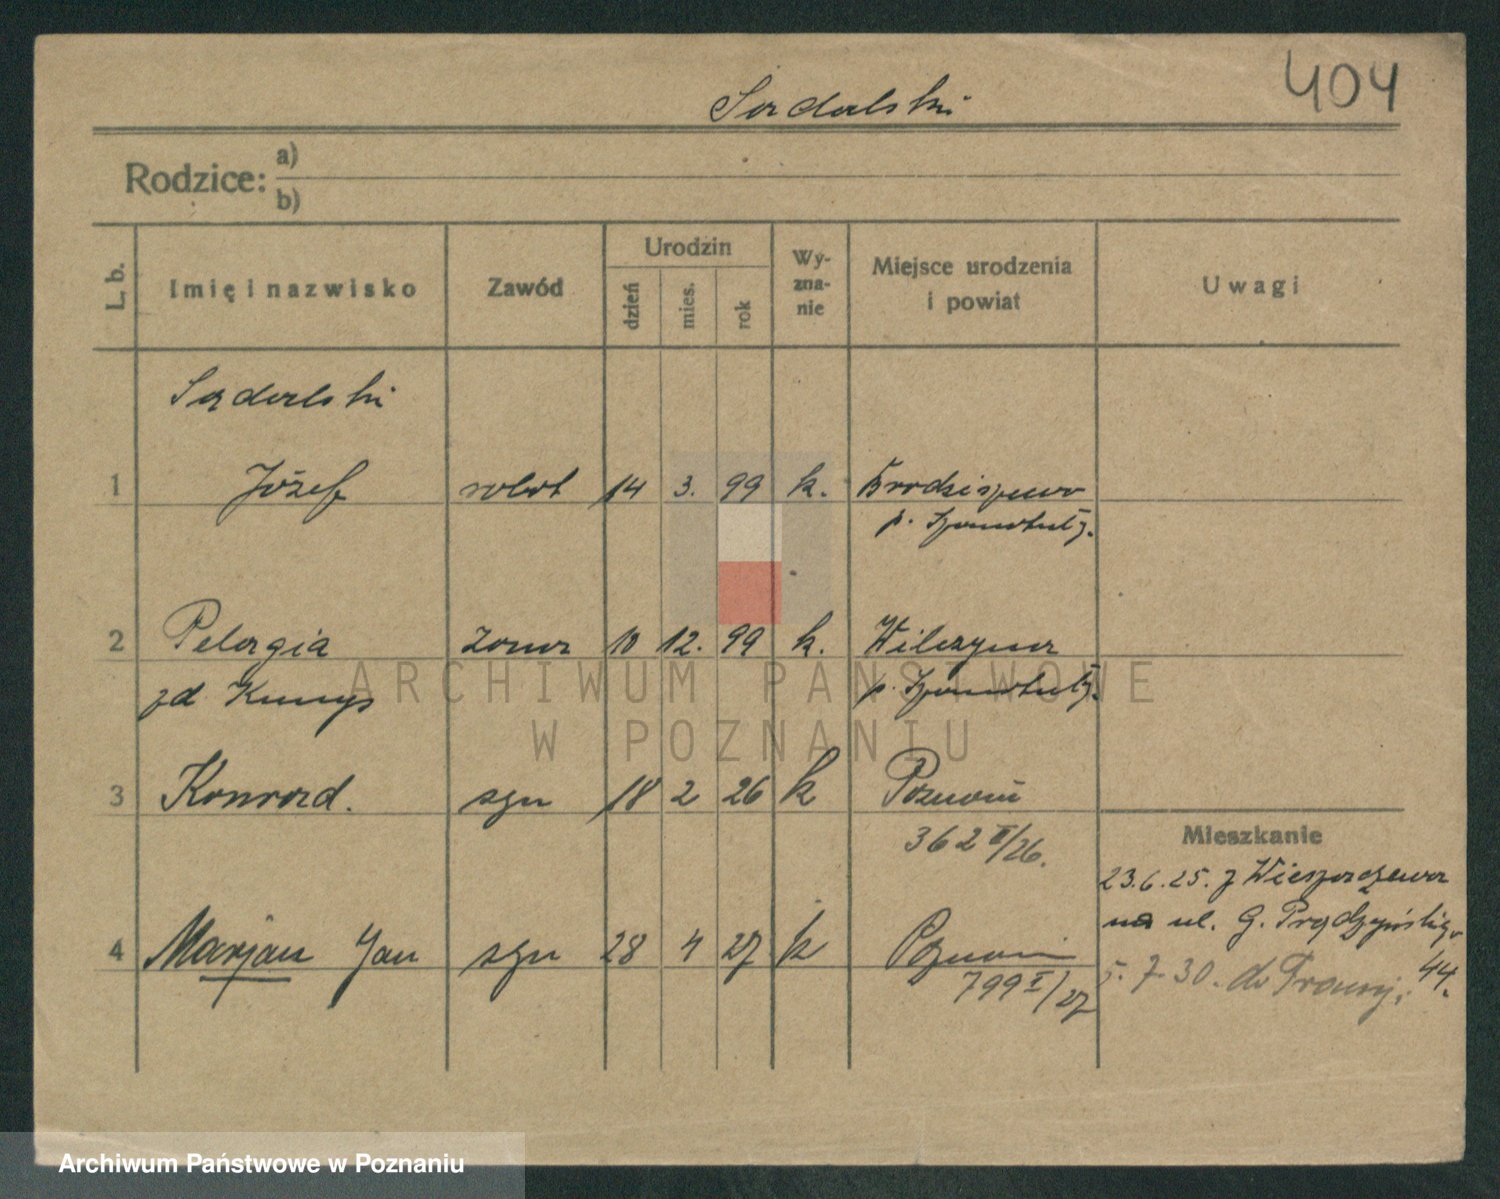 404
Sądalski
Rodzice: a)
b)
L. b. Imię i nazwisko Zawód Urodzin dzień mies. rok Wyznanie Miejsce urodzenia i powiat Uwagi
Sądalski
1 Józef robot 14 3. 99 k. Brodziszewo
p. Szamotuły.
2 Pelagia żona 10 12. 99 k. Wilczyna
zd. p. Szamotuły.
3 Konrad. syn 18 2 26 k Poznań
362 II/26.
Mieszkanie
23.6.25. z
na ul. G. Prądzyńskiego
44.
4 Marjan Jan syn 28 4 27 k Poznań
799 I/27
5.7.30. do Francj.
ARCHIWUM PAŃSTWOWE
W POZNANIU
Archiwum Państwowe w Poznaniu